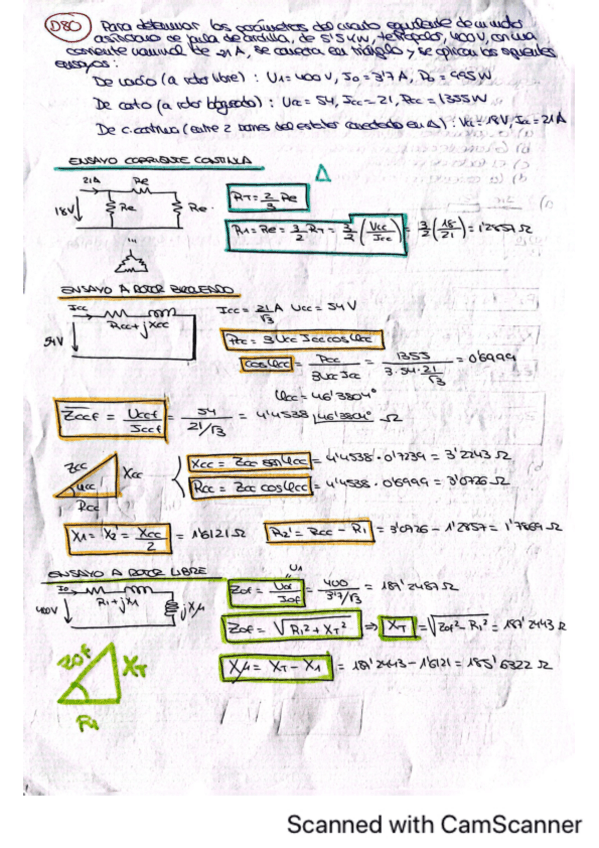 D80 Para determinar los parámetros del circuito equivalente de un motor
asíncrono de jaula de ardilla, de 5'5 KW, tetrapolar, 400V, con una
corriente nominal de 21 A, se conecta en triángulo y se aplican los siguientes
ensayos:
De vacío (a rotor libre): U1 = 400 V, I0 = 3'7 A, P0 = 495 W
De corto (a rotor bloqueado): Ucc = 54, Icc = 21, Pcc = 1355 W
De c. continua (entre 2 bornes del estator conectado en Δ): Vcc = 18V, Icc = 21 A
ENSAYO CORRIENTE CONTINUA
Δ
21A Re
18V Re Re
RT = 2/3 Re
R1 = Re = 3/2 RT = 3/2 (Vcc/Icc) = 3/2 (18/21) = 1'2857 Ω
...
ENSAYO A ROTOR BLOQUEADO
Icc Rcc + jXcc
54V
Icc = 21/√3 A Ucc = 54 V
Pcc = 3 Ucc Icc cos φcc
cos φcc = Pcc/3UccIcc = 1355/3·54·21/√3 = 0'6999
φcc = 46'3804°
Zccf = Uccf/Iccf = 54/21/√3 = 4'4538 |46'3804° Ω
Zcc Xcc φcc Rcc
Xcc = Zcc sen φcc = 4'4538 · 0'7239 = 3'2243 Ω
Rcc = Zcc cos φcc = 4'4538 · 0'6999 = 3'0726 Ω
X1 = X2' = Xcc/2 = 1'6121 Ω R2' = Rcc - R1 = 3'0926 - 1'2857 = 1'7869 Ω
ENSAYO A ROTOR LIBRE
I0 R1 + jX1 jXμ
400V
U1
Zof = Uof/Iof = 400/3'7/√3 = 187'2487 Ω
Zof = √R1² + XT² ⇒ XT = √Zof² - R1² = 187'2443 Ω
Zof XT R1
Xμ = XT - X1 = 187'2443 - 1'6121 = 185'6322 Ω
Scanned with CamScanner